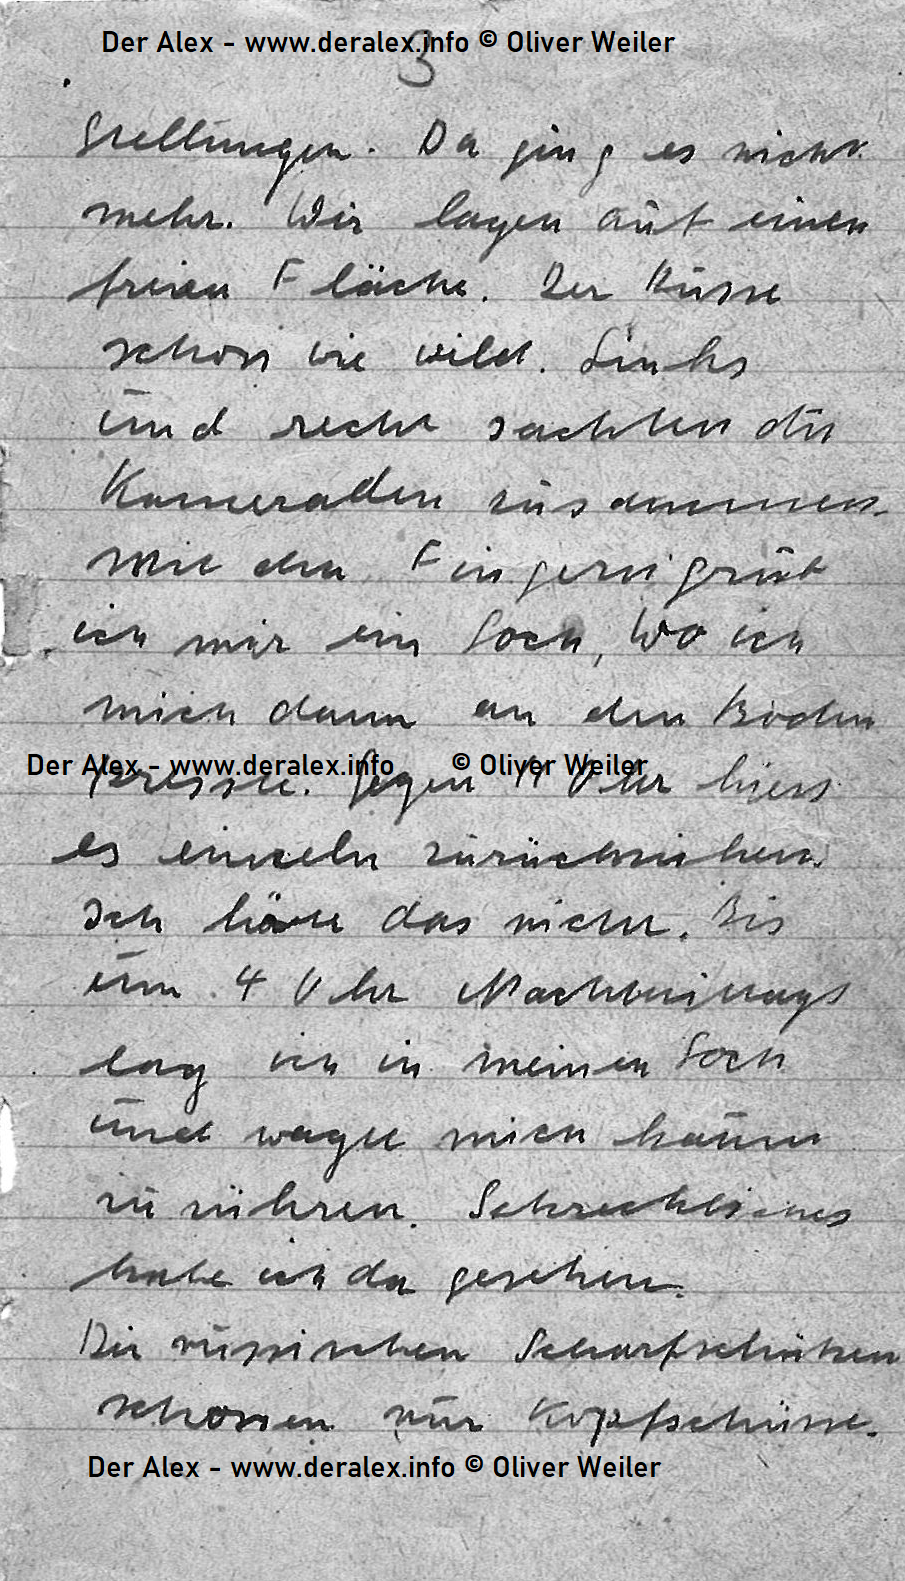 Der Alex - www.deralex.info © Oliver Weiler
3
Stellungen. Da ging es nicht
mehr. Wir lagen auf einen
freien Fläche. Der Russe
schoss wie wild. Links
und recht sackten die
Kameraden zusammen.
Mit den Fingern grub
ich mir ein Loch, wo ich
mich dann an den Boden
Der Alex - www.deralex.info © Oliver Weiler
presste. Gegen 11 Uhr hiess
es einzeln zurückziehen.
Ich hörte das nicht. Bis
um 4 Uhr Nachmittags
lag ich in meinen Loch
und wagte mich kaum
zu rühren. Schreckliches
habe ich da gesehen.
Die russischen Scharfschützen
schossen nur Kopfschüsse.
Der Alex - www.deralex.info © Oliver Weiler